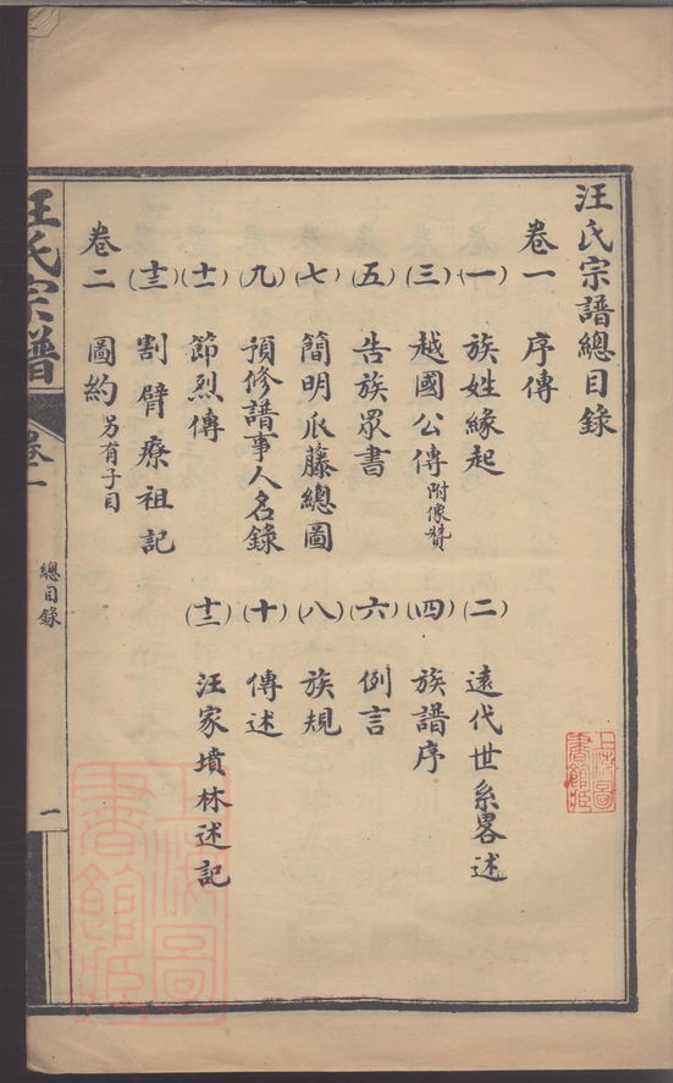 汪氏宗譜總目錄
卷一 序傳
(一) 族姓緣起 (二) 遠代世系畧述
(三) 越國公傳 附像贊 (四) 族譜序
(五) 告族眾書 (六) 例言
(七) 簡明瓜藤總圖 (八) 族規
(九) 預修譜事人名錄 (十) 傳述
(十一) 節烈傳 (十二) 汪家墳林述記
(十三) 割臂療祖記
卷二 圖約 另有子目
汪氏宗譜 卷一 總目錄 一
上海圖書館藏
上海圖書館藏